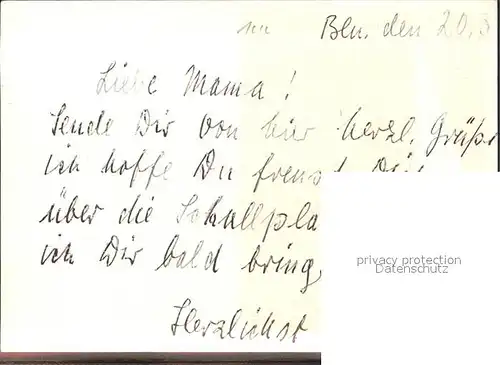 Bln. den 20.
Liebe Mama!
Sende Dir von hier herzl. Grüße
ich hoffe Du freust Dich
über die Schallpla
ich Dir bald bring,
Herzlichst
privacy protection
Datenschutz